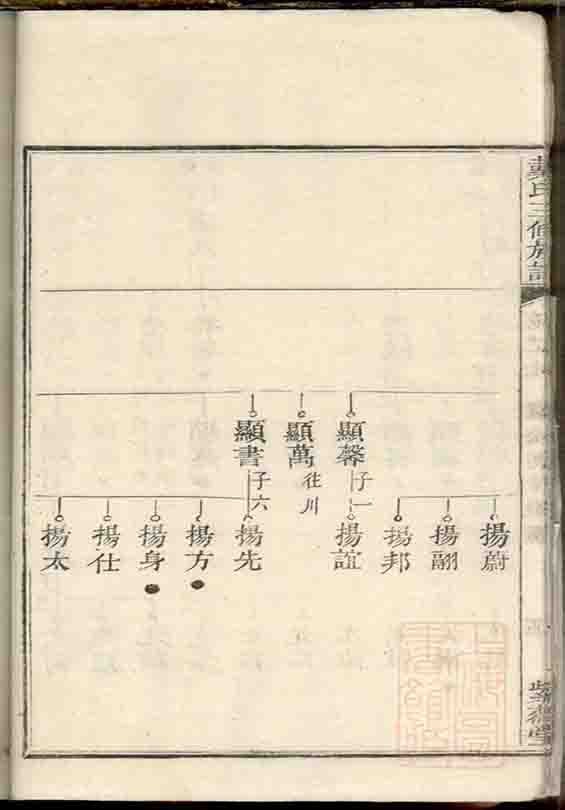 戴氏三修族譜
顯馨
子一
顯萬
往川
顯書
子六
揚蔚
揚翮
揚邦
揚誼
揚先
揚方
揚身
揚仕
揚太